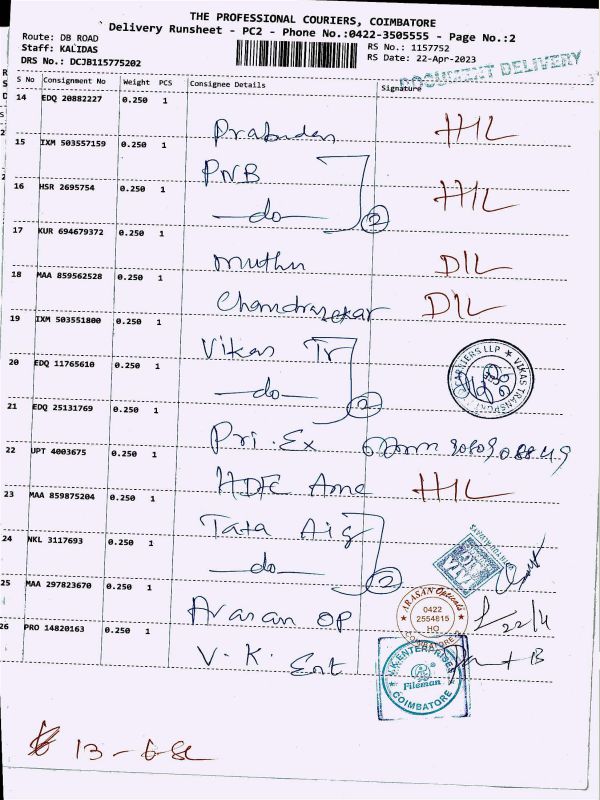 THE PROFESSIONAL COURIERS, COIMBATORE
Delivery Runsheet - PC2 - Phone No.:0422-3505555 - Page No.:2
Route: DB ROAD
Staff: KALIDAS
DRS No.: DCJB115775202
RS No.: 1157752
RS Date: 22-Apr-2023
DOCUMENT DELIVERY
S No Consignment No Weight PCS Consignee Details Signature
14 EDQ 20882227 0.250 1
15 IXM 503557159 0.250 1 PNB
16 HSR 2695754 0.250 1 —do— 2
17 KUR 694679372 0.250 1 Muthu D/L
18 MAA 859562528 0.250 1 Chandrasekar D/L
19 IXM 503551800 0.250 1 Vikas Tr
20 EDQ 11765610 0.250 1 —do— 2
VIKAS TRANSPORT
21 EDQ 25131769 0.250 1 Pri. Ex
22 UPT 4003675 0.250 1 HDFC Amc
23 MAA 859875204 0.250 1 Tata Aig
24 NKL 3117693 0.250 1 —do— 2
25 MAA 297823670 0.250 1 Arasan OP 22/4
ARASAN Opticals
0422
2554815
HO
COIMBATORE
26 PRO 14820163 0.250 1 V. K. Ent
V.K. ENTERPRISES
Fileman
COIMBATORE